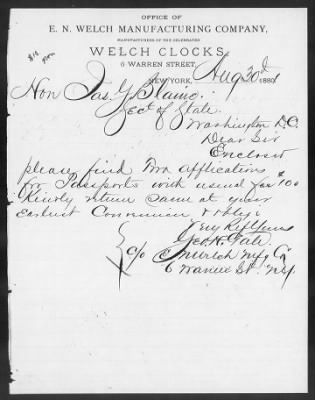 OFFICE OF
E. N. WELCH MANUFACTURING COMPANY,
MANUFACTURERS OF THE CELEBRATED
WELCH CLOCKS,
6 WARREN STREET,
NEW YORK, Aug 30th 1881
Hon Jas. G. Blaine.
Sect of State.
Washington D.C.
Dear Sir
Enclosed
please find two applications
for Passports with usual fee $1000
Kindly return same at your
earliest & oblige
Very
Geo. H.
c/o E N Welch Mfg Co
6 Warren St. N.Y.